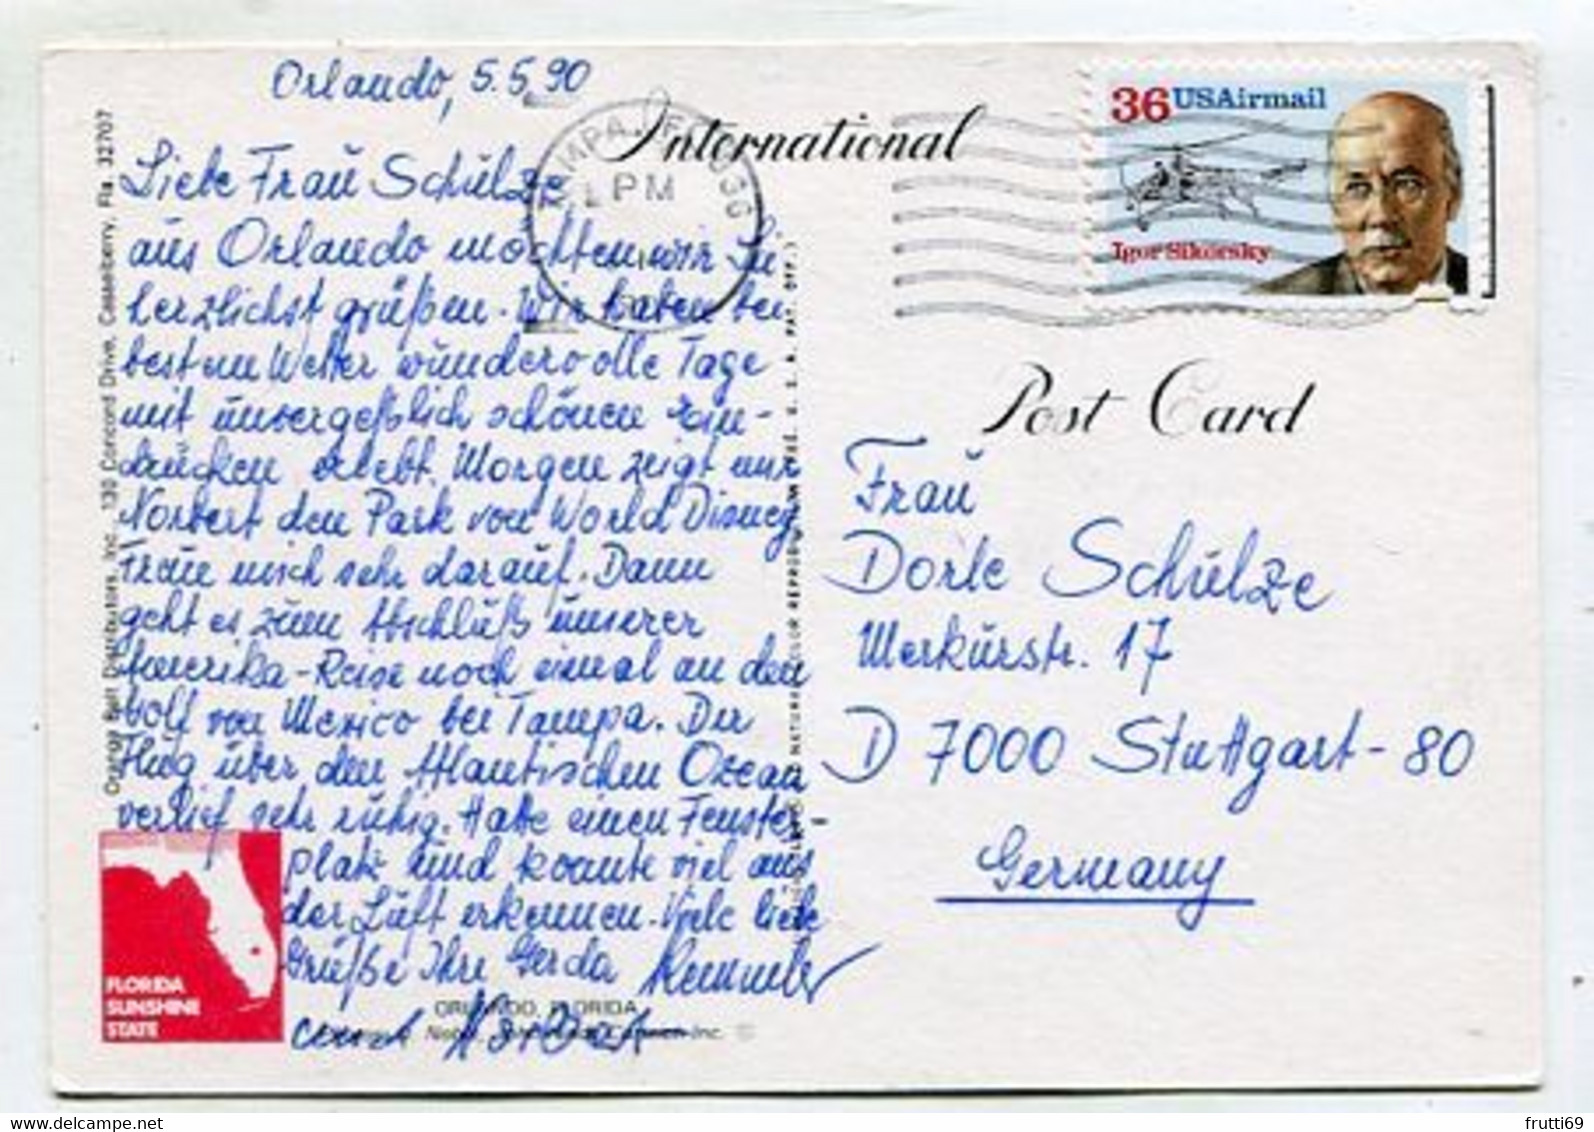 Orlando, 5.5.90
Liebe Frau Schulze
aus Orlando möchten wir Sie
herzlichst grüßen. Wir haben bei
bestem Wetter wundervolle Tage
mit unvergeßlich schönen Ein-
drücken erlebt. Morgen zeigt mir
Norbert den Park von World Disney
Freue mich sehr darauf. Dann
geht es zum Abschluß unserer
Amerika-Reise noch einmal an den
Golf von Mexico bei Tampa. Der
Flug über den Atlantischen Ozean
verlief sehr ruhig. Hatte einen Fenster-
platz und konnte viel aus
der Luft erkennen. Viele liebe
Grüße Ihre Gerda Remmler
und Norbert
International
Post Card
36 USAirmail
Igor Sikorsky
TAMPA, FL
PM
Frau
Dorle Schulze
Merkurstr. 17
D 7000 Stuttgart-80
Germany
Orange Belt Distributors, Inc. 130 Concord Drive, Casselberry, Fla. 32707
FLORIDA
SUNSHINE
STATE
ORLANDO, FLORIDA
Inc. ©
NATURAL COLOR REPRODUCTION U. S. A. PAT. OFF.)
frutti69